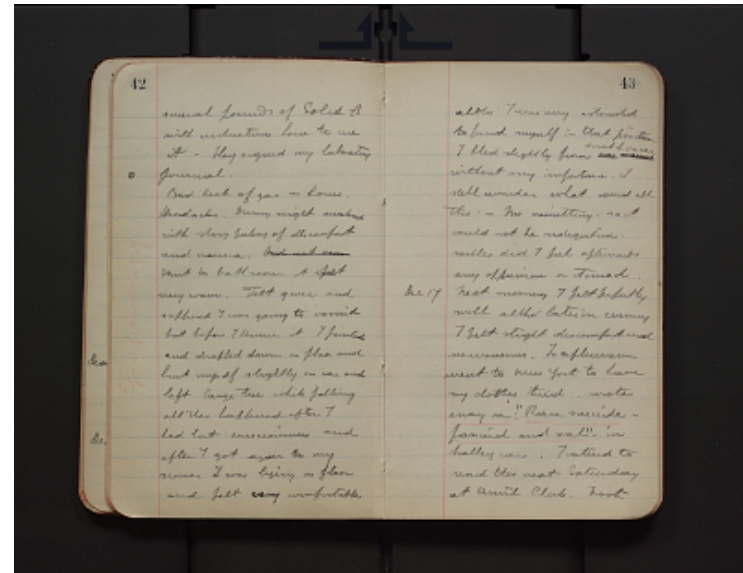 42
several pounds of Solid A
with instructions how to use
it - They signed my laboratory
Journal.
Bad leak of gas in house.
Headaches. During night awaked
with strong feeling of discomfort
and nausea.
went to bathroom & felt
very warm. Felt queer and
I was going to vomit
but before I knew it I fainted
and dropped down on floor and
hurt myself slightly on ear and
left large toe while falling
all this happened after I
had lost consciousness and
after I got again to my
senses I was lying on floor
and felt very comfortable
43
altho' I was very astonished
to find myself in that position
I bled slightly from
without any importance. I
still wonder what caused all
this. - No vomitting - so it
could not be indigestion.
neither did I feel afterwards
any oppression on stomach.
Dec 17 Next morning I felt perfectly
well altho later in evening
I felt slight discomfort and
nervousness. In afternoon
went to New York to have
my clothes tried. wrote
essay on "Race suicide -
fancied and real" in
trolley cars. I intend to
read this next Saturday
at Club. Took
Dec
De